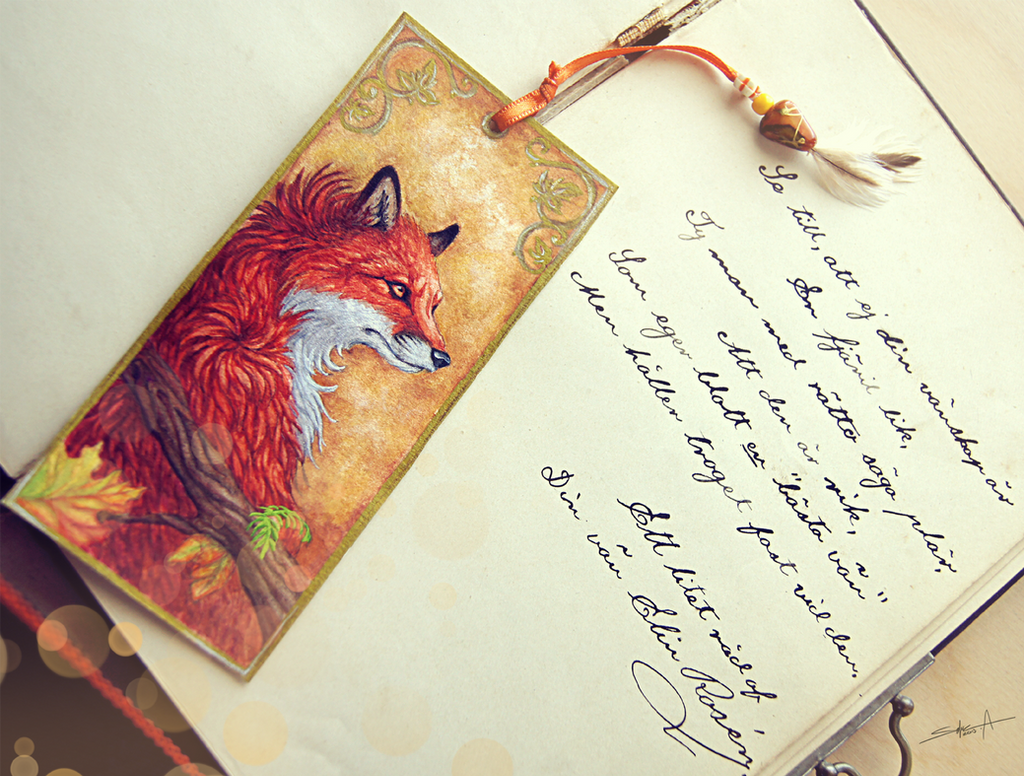 Se till, att ej din vänskap är
En fjäril lik,
Ty man med rätta säga plär,
Att den är rik,
Som eger blott en "bästa vän"
Men håller troget fast vid den.
Ett litet råd af
Din vän Elin Rosén,